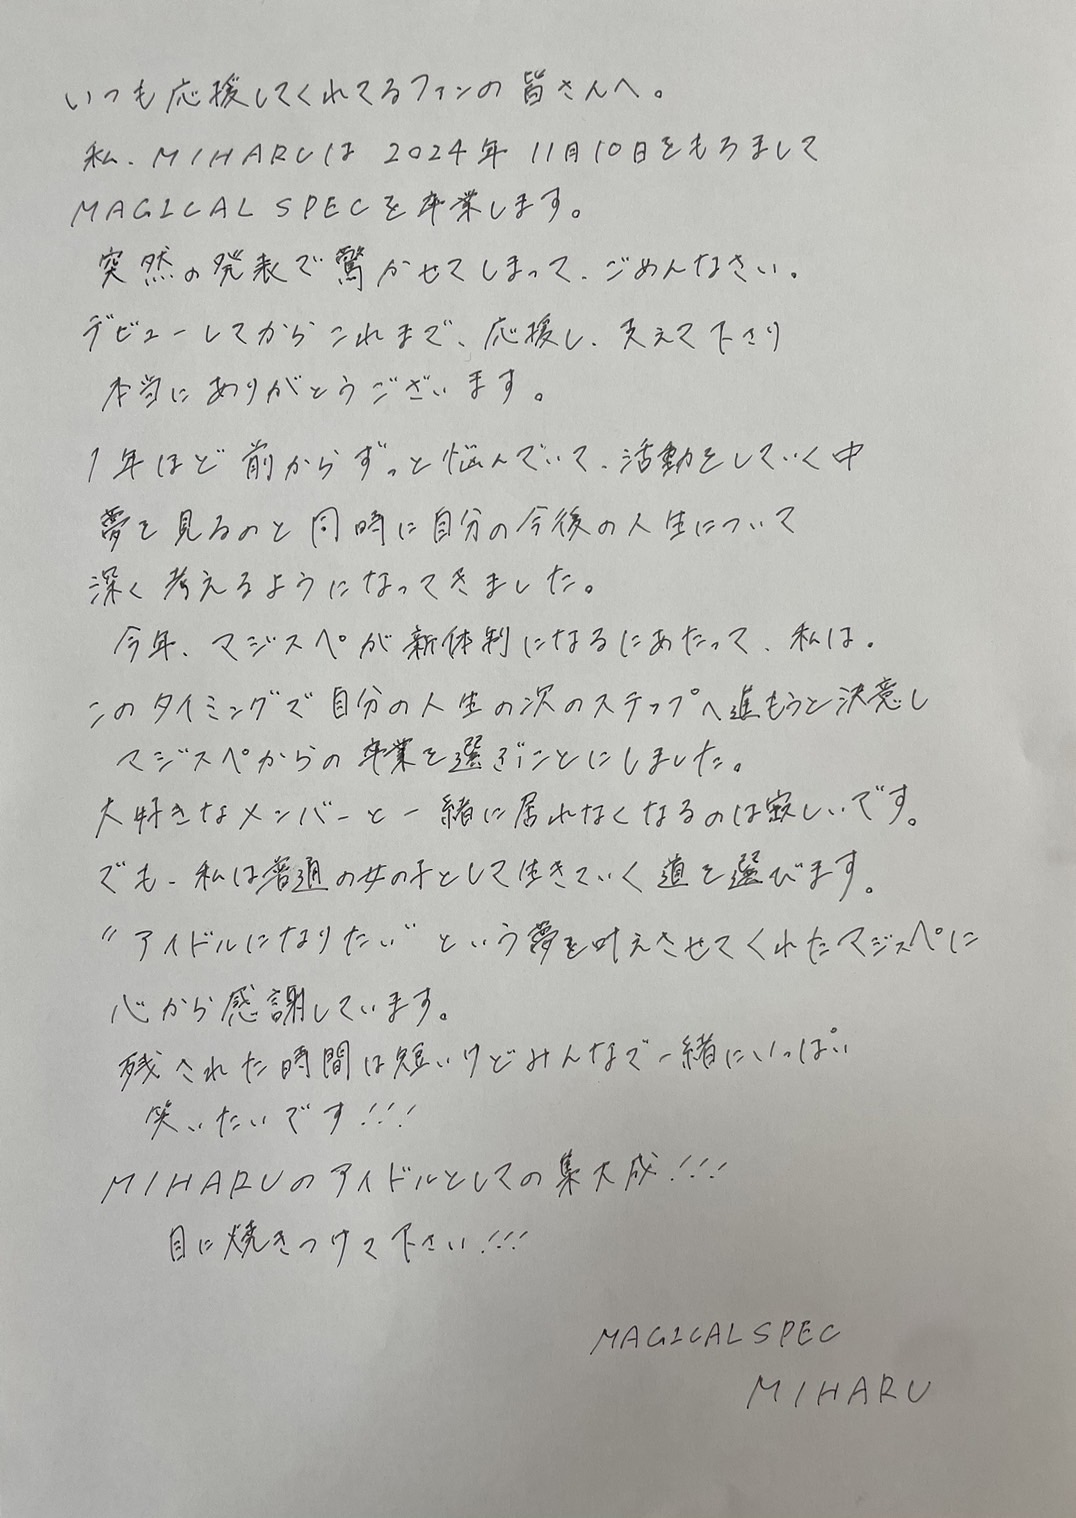 いつも応援してくれてるファンの皆さんへ。
私、MIHARUは 2024年 11月10日をもちまして
MAGICAL SPECを卒業します。
突然の発表で驚かせてしまって、ごめんなさい。
デビューしてからこれまで、応援し、支えて下さり
本当にありがとうございます。
1年ほど前からずっと悩んでいて、活動をしていく中
夢を見るのと同時に自分の今後の人生について
深く考えるようになってきました。
今年、マジスペが新体制になるにあたって、私は。
このタイミングで自分の人生の次のステップへ進もうと決意し
マジスペからの卒業を選ぶことにしました。
大好きなメンバーと一緒に居れなくなるのは寂しいです。
でも、私は普通の女の子として生きていく道を選びます。
"アイドルになりたい"という夢を叶えさせてくれたマジスペに
心から感謝しています。
残された時間は短いけどみんなで一緒にいっぱい
笑いたいです!!!
MIHARUのアイドルとしての集大成!!!
目に焼きつけて下さい!!!
MAGICALSPEC
MIHARU